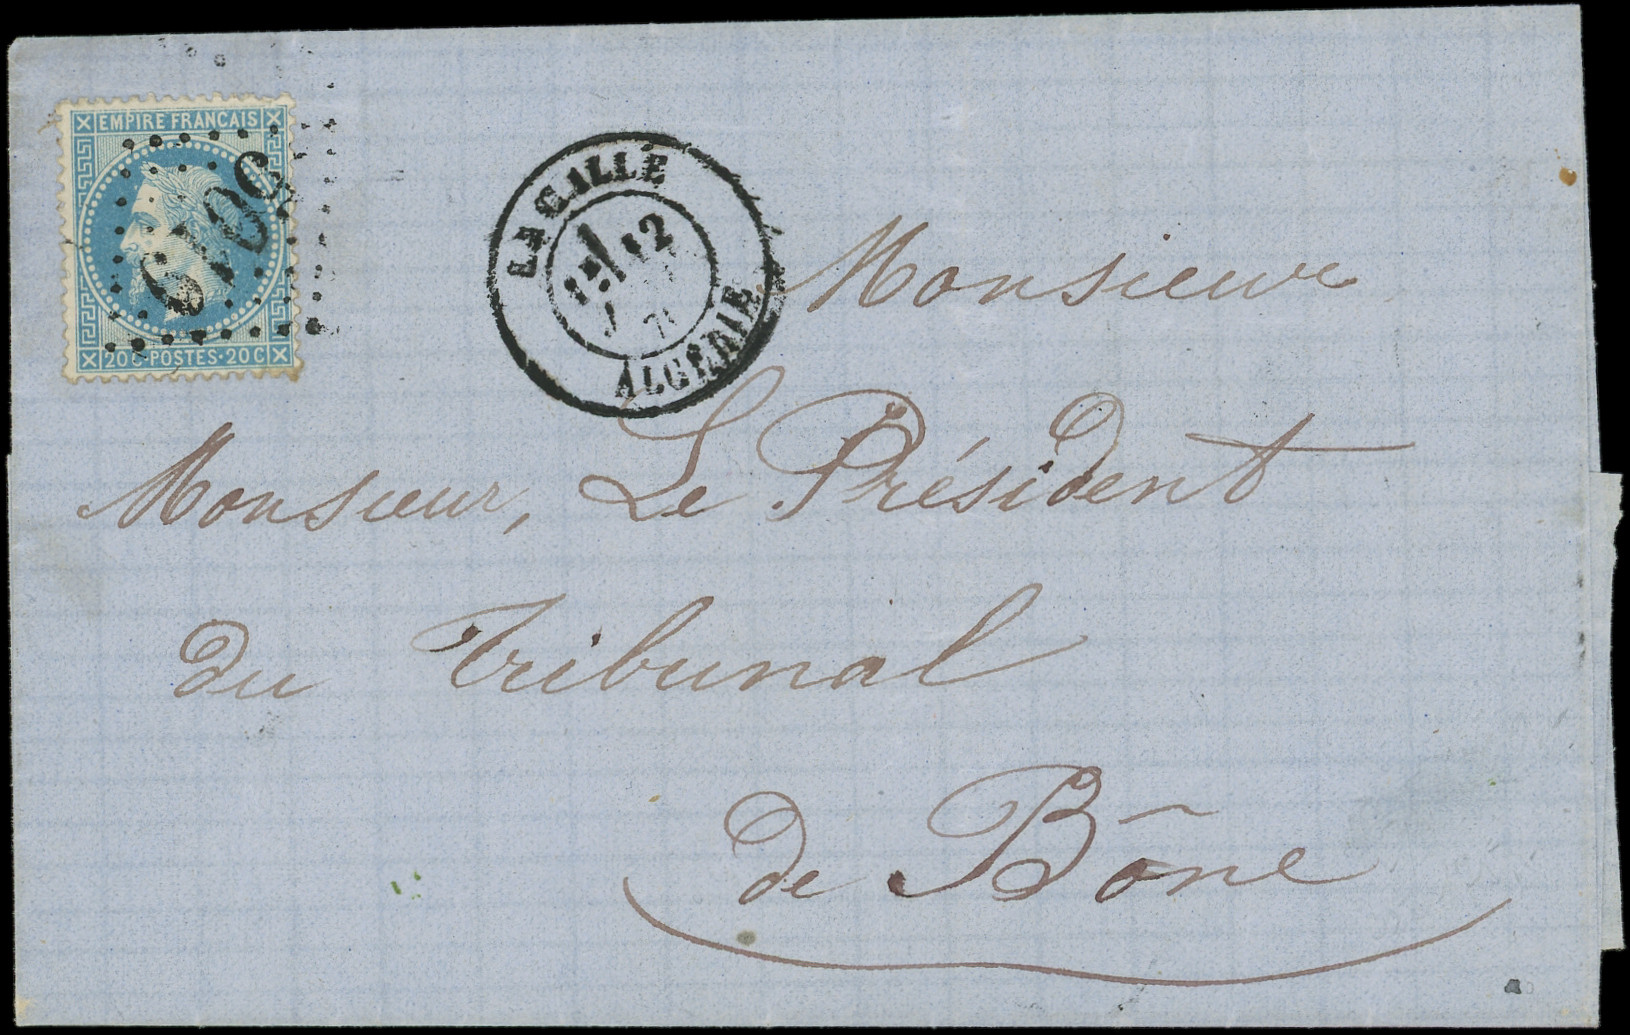 EMPIRE FRANCAIS
20 C · POSTES · 20 C
LA CALLE
ALGÉRIE
Monsieur
Monsieur, Le Président
du Tribunal
de Bône